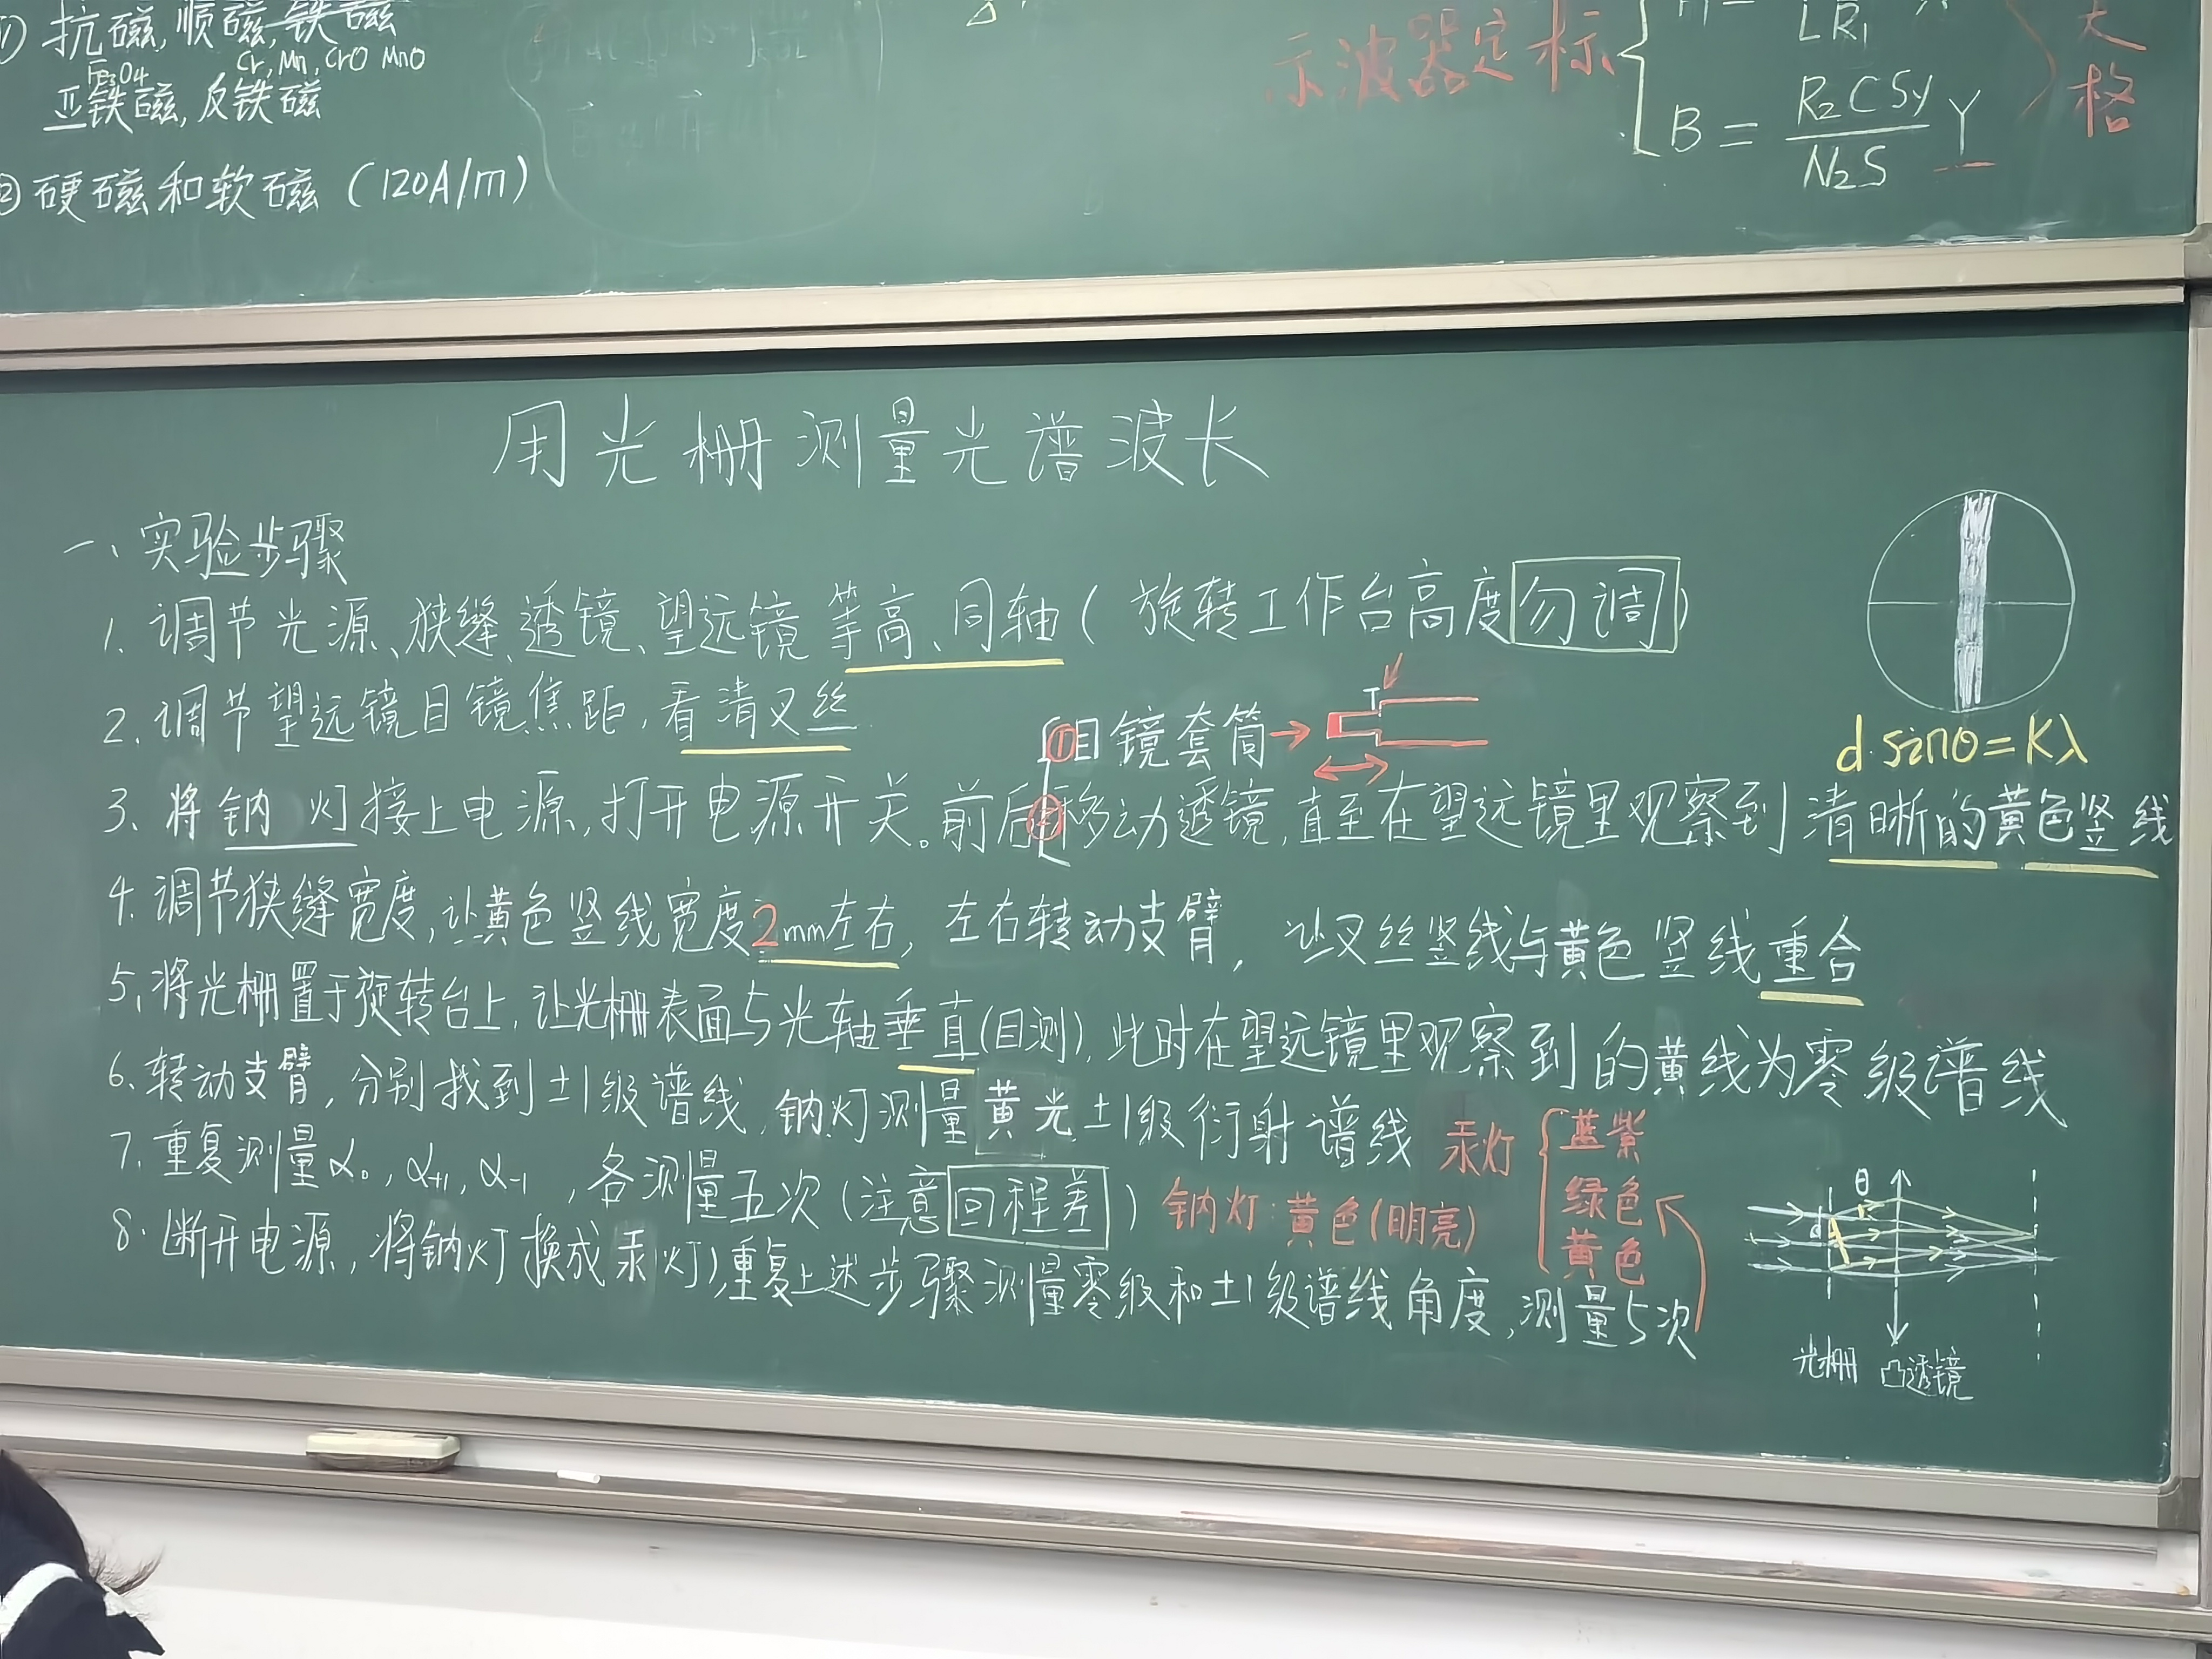 ① 抗磁, 顺磁, 铁磁
Fe3O4 Cr, Mn, CrO MnO
亚铁磁, 反铁磁
② 硬磁和软磁 (120A/m)
示波器定标
LR1
B = R2CSy/N2S Y
大格
用光栅测量光谱波长
一、实验步骤
1. 调节光源、狭缝、透镜、望远镜等高、同轴( 旋转工作台高度勿调)
2. 调节望远镜目镜焦距, 看清叉丝
①目镜套筒→ T
d sinθ=Kλ
3. 将钠灯接上电源, 打开电源开关。前后②移动透镜, 直至在望远镜里观察到清晰的黄色竖线
4. 调节狭缝宽度, 让黄色竖线宽度2mm左右, 左右转动支臂, 让叉丝竖线与黄色竖线重合
5. 将光栅置于旋转台上, 让光栅表面与光轴垂直(目测), 此时在望远镜里观察到的黄线为零级谱线
6. 转动支臂, 分别找到±1级谱线, 钠灯测量黄光±1级衍射谱线
汞灯 { 蓝紫
绿色
黄色
7. 重复测量α0, α+1, α-1, 各测量五次 (注意回程差)
钠灯: 黄色(明亮)
8. 断开电源, 将钠灯换成汞灯, 重复上述步骤测量零级和±1级谱线角度, 测量5次
θ
d
光栅 凸透镜